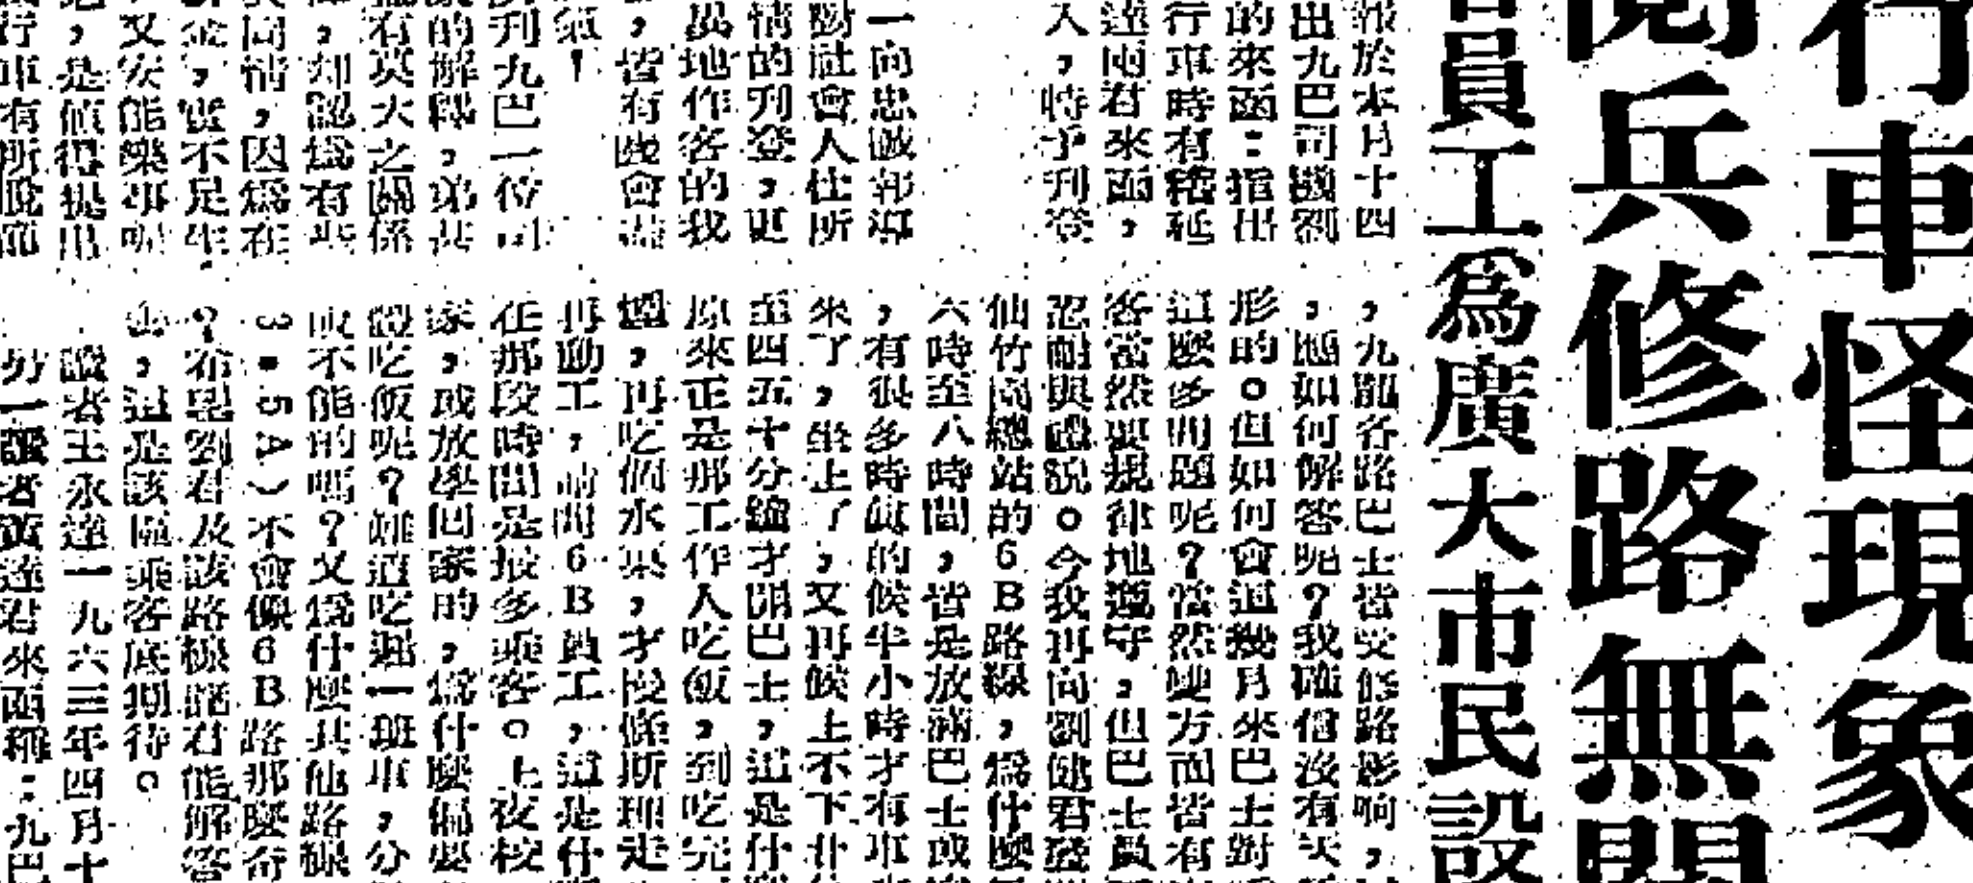 行車怪現象
兵修路無關
員工爲廣大市民設
報於本月十四
出九巴司機劉
的來函：指出
行車時有稽延
達雨君來函，
人，特予刊登
一向忠誠報導
關社會人仕所
情的刋登，更
萬地作客的我
，皆有機會盡
紙！
刋九巴一位司
的解釋，弟甚
有莫大之關係
，却認爲有些
同情，因爲在
金，實不足生
又安能樂事呢
，是值得提出
行車有所脫節
，九龍各路巴士皆受修路影响，
，應如何解答呢？我確信沒有失
形的。但如何會這幾月來巴士對
這麼多問題呢？當然雙方面皆有
客當然要規律地遵守，但巴士員
忍耐與禮貌。今我再向劉健君發
仙竹園總站的6B路線，爲什麼
六時至八時間，皆是放滿巴士或
，有很多時眞的候半小時才有車
來了，坐上了，又再候上不下廿
至四五十分鐘才開巴士，這是什
原來正是那工作人吃飯，到吃完
，再吃個水果，才慢條斯理走
再動工，請問6B員工，這是什
在那段時間是最多乘客。上夜校
家，或放學回家的，爲什麼偏要
體吃飯呢？難道吃遲一班車，分
或不能的嗎？又爲什麼其他路線
3•5A）不會像6B路那麼奇
？希望劉君及該路君能解答
出，這是該區乘客底期待。
讀者王永達一九六三年四月十
另一讀者黃達君來函稱：九巴